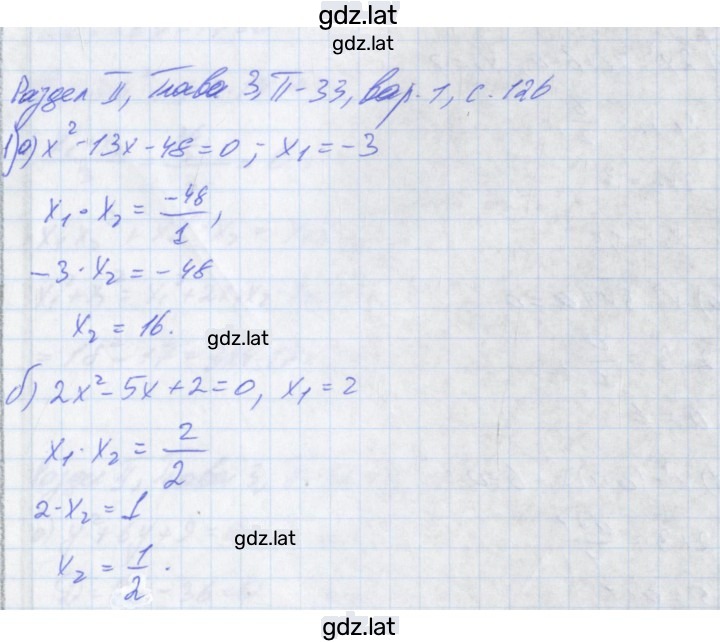 gdz.lat
gdz.lat
Раздел II, Глава 3, П-33, вар. 1, с. 126
1) а) x² - 13x - 48 = 0 ; x₁ = -3
x₁ · x₂ = -48/1,
-3 · x₂ = -48
x₂ = 16.
gdz.lat
б) 2x² - 5x + 2 = 0, x₁ = 2
x₁ · x₂ = 2/2
2 · x₂ = 1
gdz.lat
x₂ = 1/2.
gdz.lat